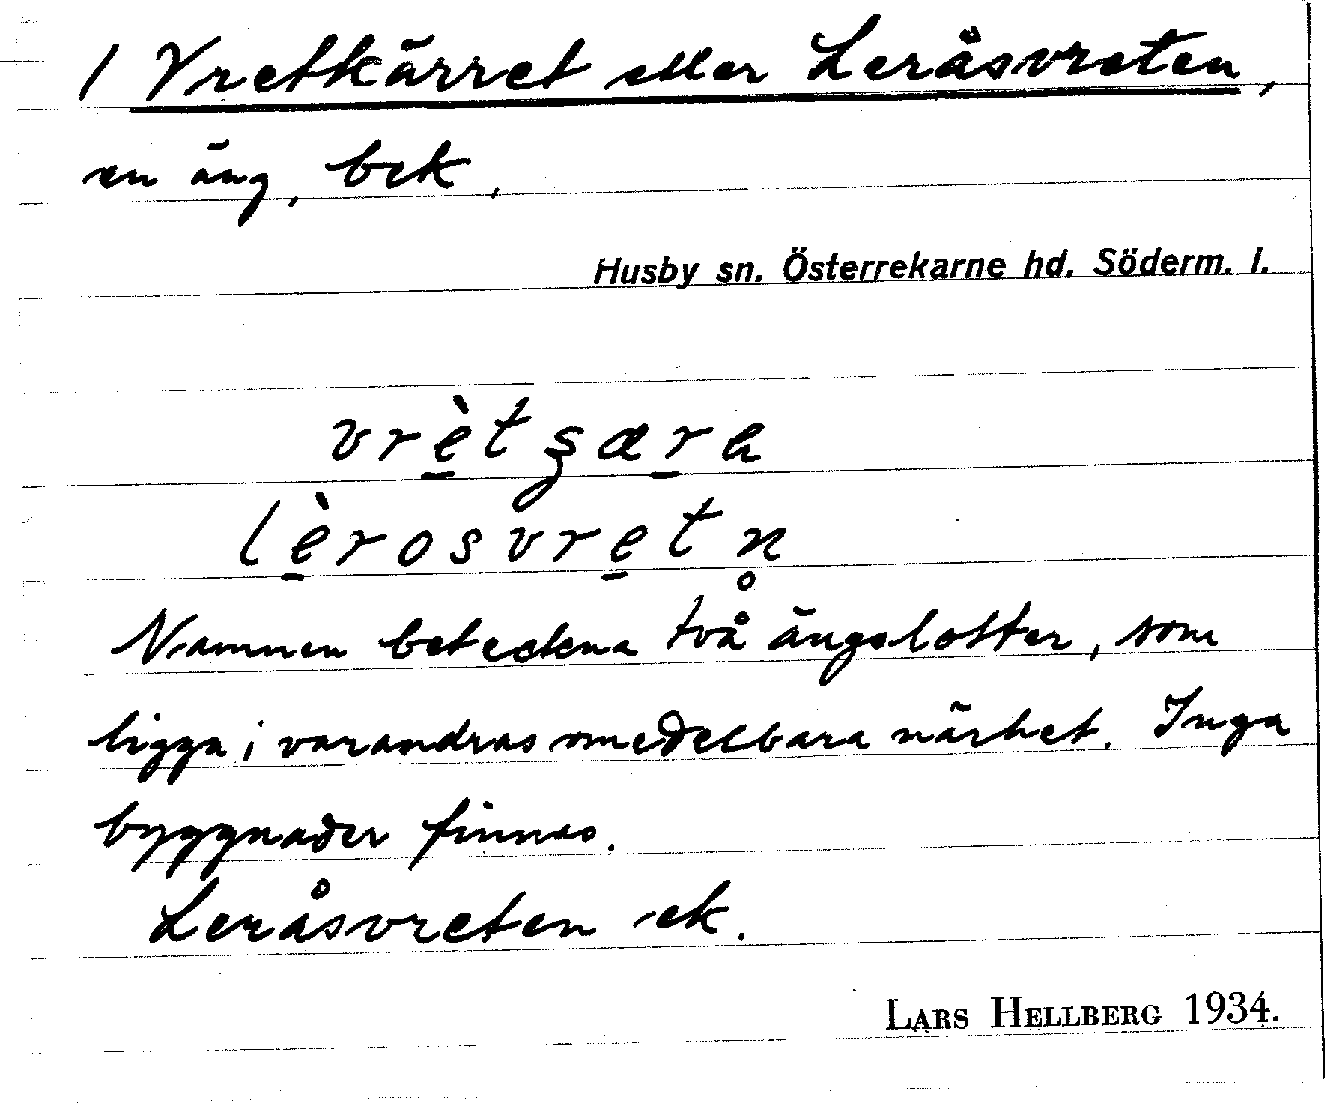 / Vretkärret eller Leråsvreten,
en äng, bek.
Husby sn. Österrekarne hd. Söderm. l.
vrètʂæra
lèrosvretn̥
Namnen beteckna två ängslotter, som
ligga i varandras omedelbara närhet. Inga
byggnader finnas.
Leråsvreten ek.
LARS HELLBERG 1934.